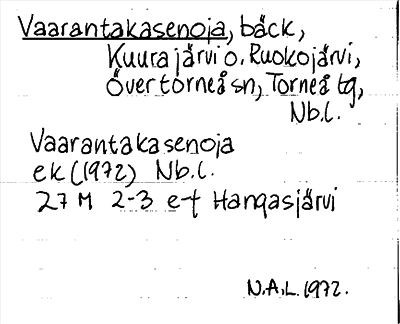 Vaarantakasenoja, bäck,
Kuurajärvi o. Ruokojärvi,
Övertorneå sn, Torneå tg,
Nb.l.
Vaarantakasenoja
ek (1972) Nb.l.
27 M 2-3 e-f Hangasjärvi
N.A.L. 1972.